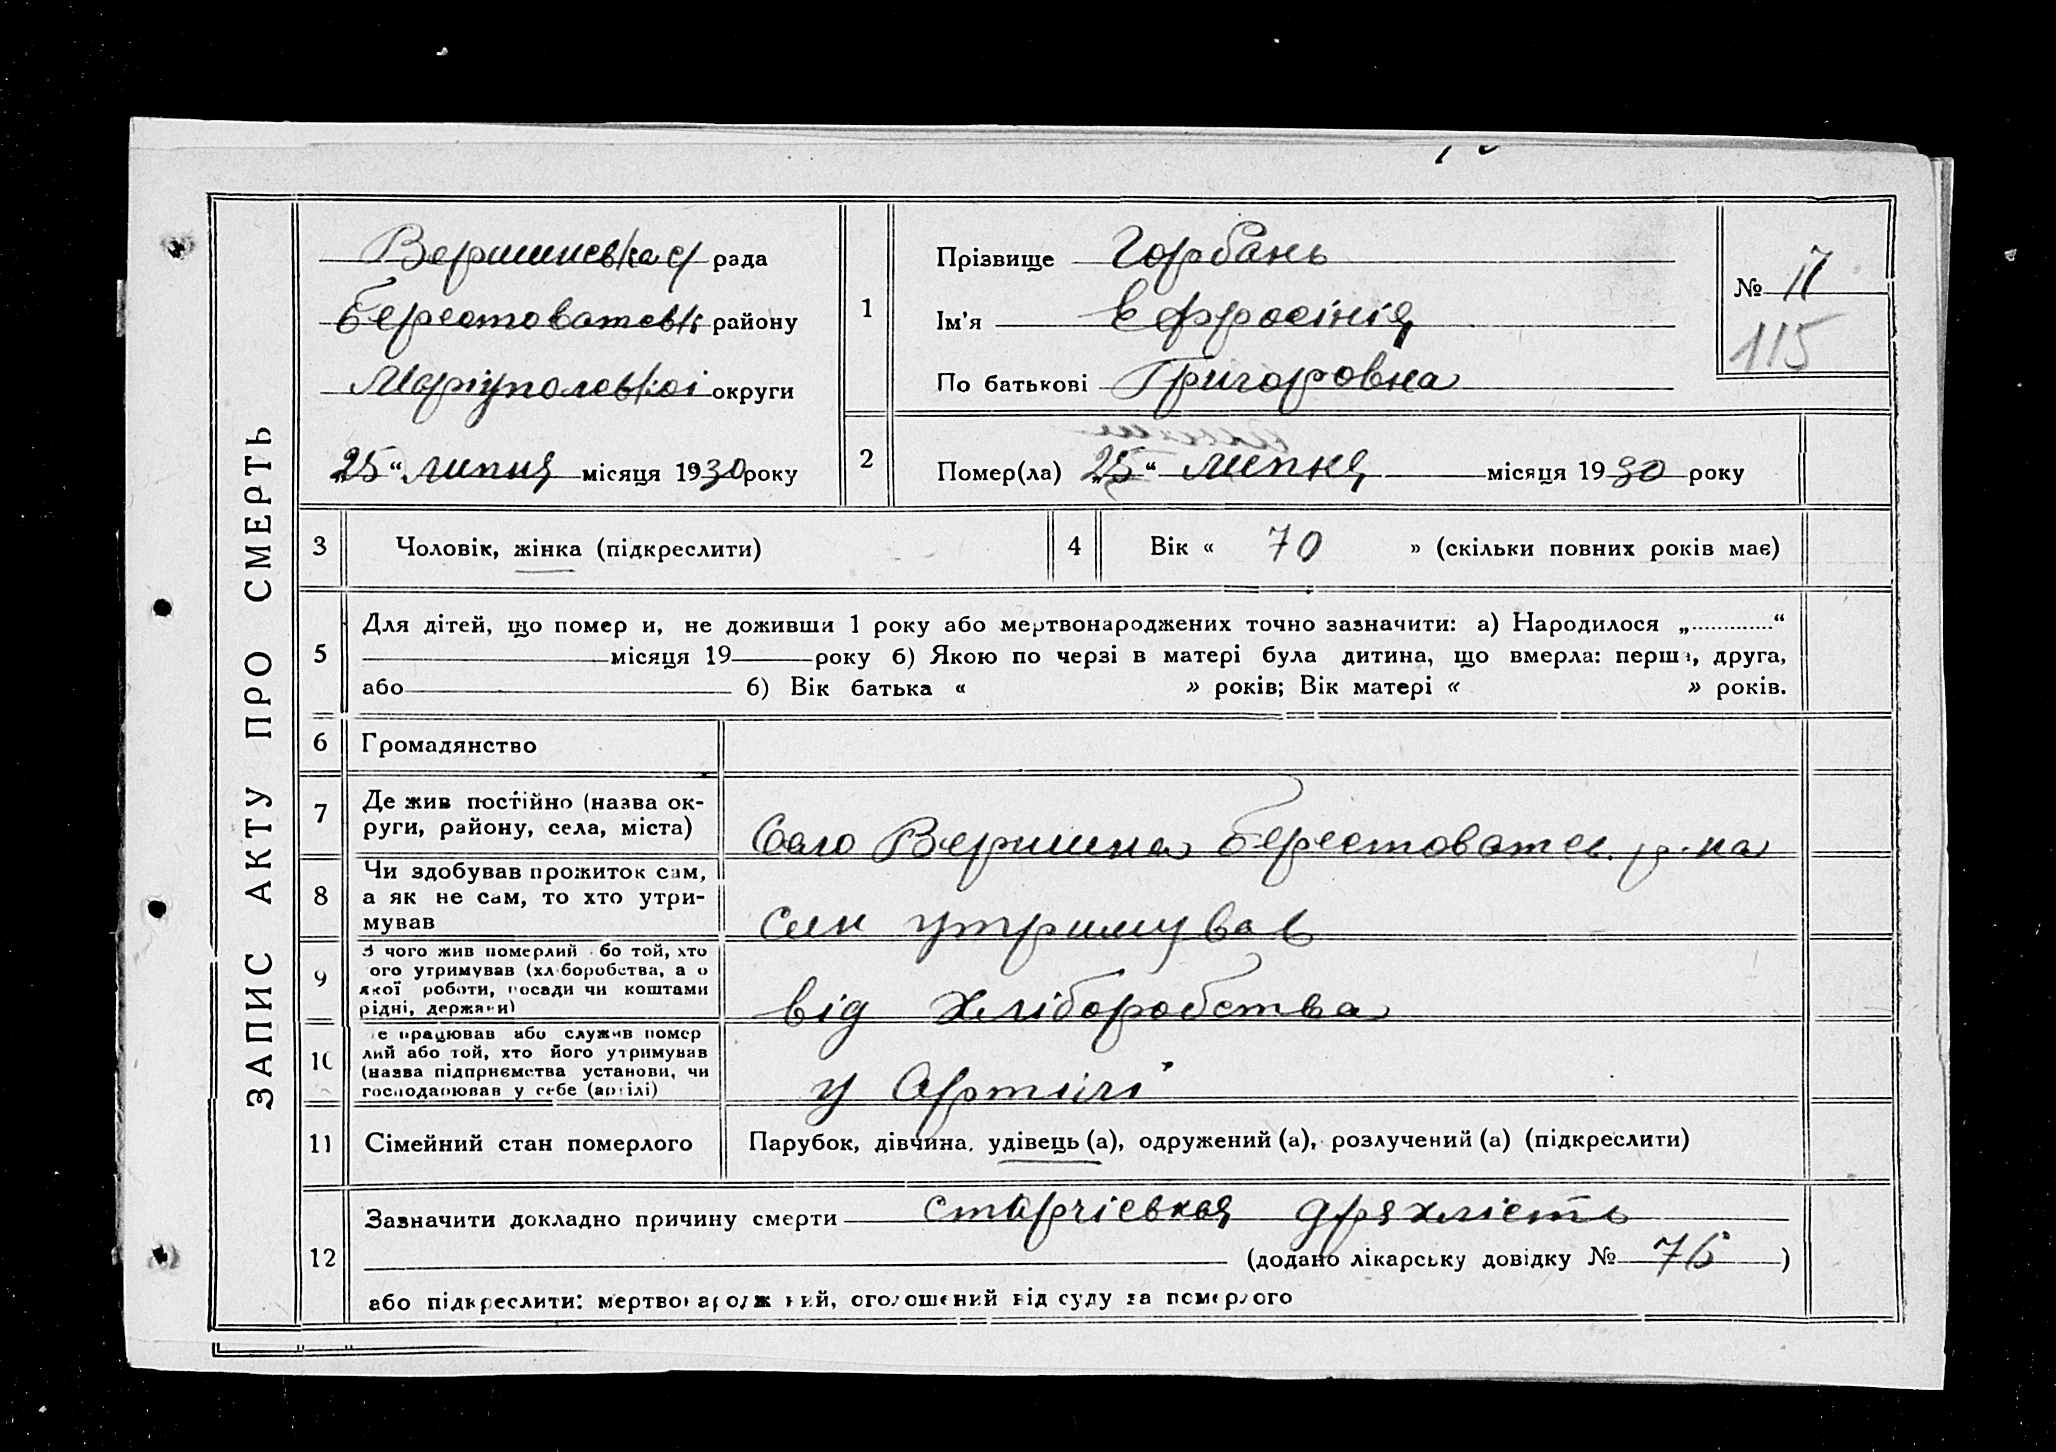 ЗАПИС АКТУ ПРО СМЕРТЬ
Вершинська с/ рада
Берестоватськ району
Маріупольської округи
25 “ липня місяця 1930 року
1
Прізвище Горбань
Ім’я Єфросінія
По батькові Григоровна
№ 17
115
2
Помер(ла) „25“ липня місяця 1930 року
3 Чоловік, жінка (підкреслити)
4 Вік « 70 » (скільки повних років має)
5
Для дітей, що помер и, не доживши 1 року або мертвонароджених точно зазначити: а) Народилося „ “
місяця 19 року б) Якою по черзі в матері була дитина, що вмерла: перша, друга,
або б) Вік батька « » років; Вік матері « » років.
6 Громадянство
7 Де жив постійно (назва ок-
руги, району, села, міста)
Село Вершина Берестоватск. р-на
8 Чи здобував прожиток сам,
а як не сам, то хто утри-
мував
син утримував
9 З чого жив померлий бо той, хто
ого утримував (хл боробства, а о
якої роботи, посади чи коштами
рідні, держави)
від хліборобства
10 е працював або служив помер
лий або той, хто його утримував
(назва підприємства установи, чи
господарював у себе (артілі)
у Артілі
11 Сімейний стан померлого
Парубок, дівчина, удівець (а), одружений (а), розлучений (а) (підкреслити)
12
Зазначити докладно причину смерти старчієвкая дряхлість
(додано лікарську довідку № 76 )
або підкреслити: мертвонароджений, оголошений від суду за померлого